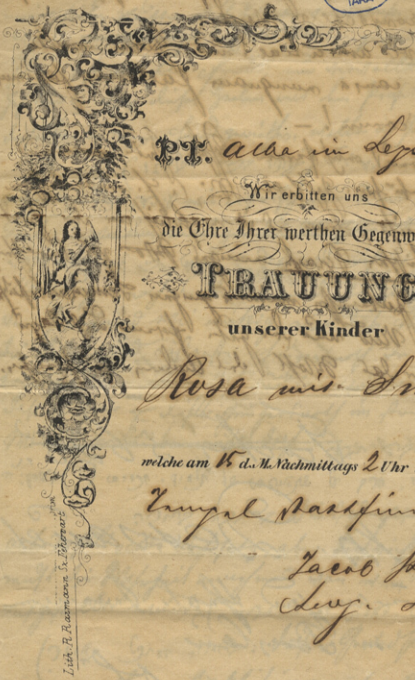 P.T. Alba im
Wir erbitten uns
die Ehre Ihrer werthen Gegenw
TRAUUNG
unserer Kinder
Rosa mit
welche am 15 d. M. Nachmittags 2 Uhr
Tempel stattfin
Jacob
Lith. R. Razmann St. Fehervart